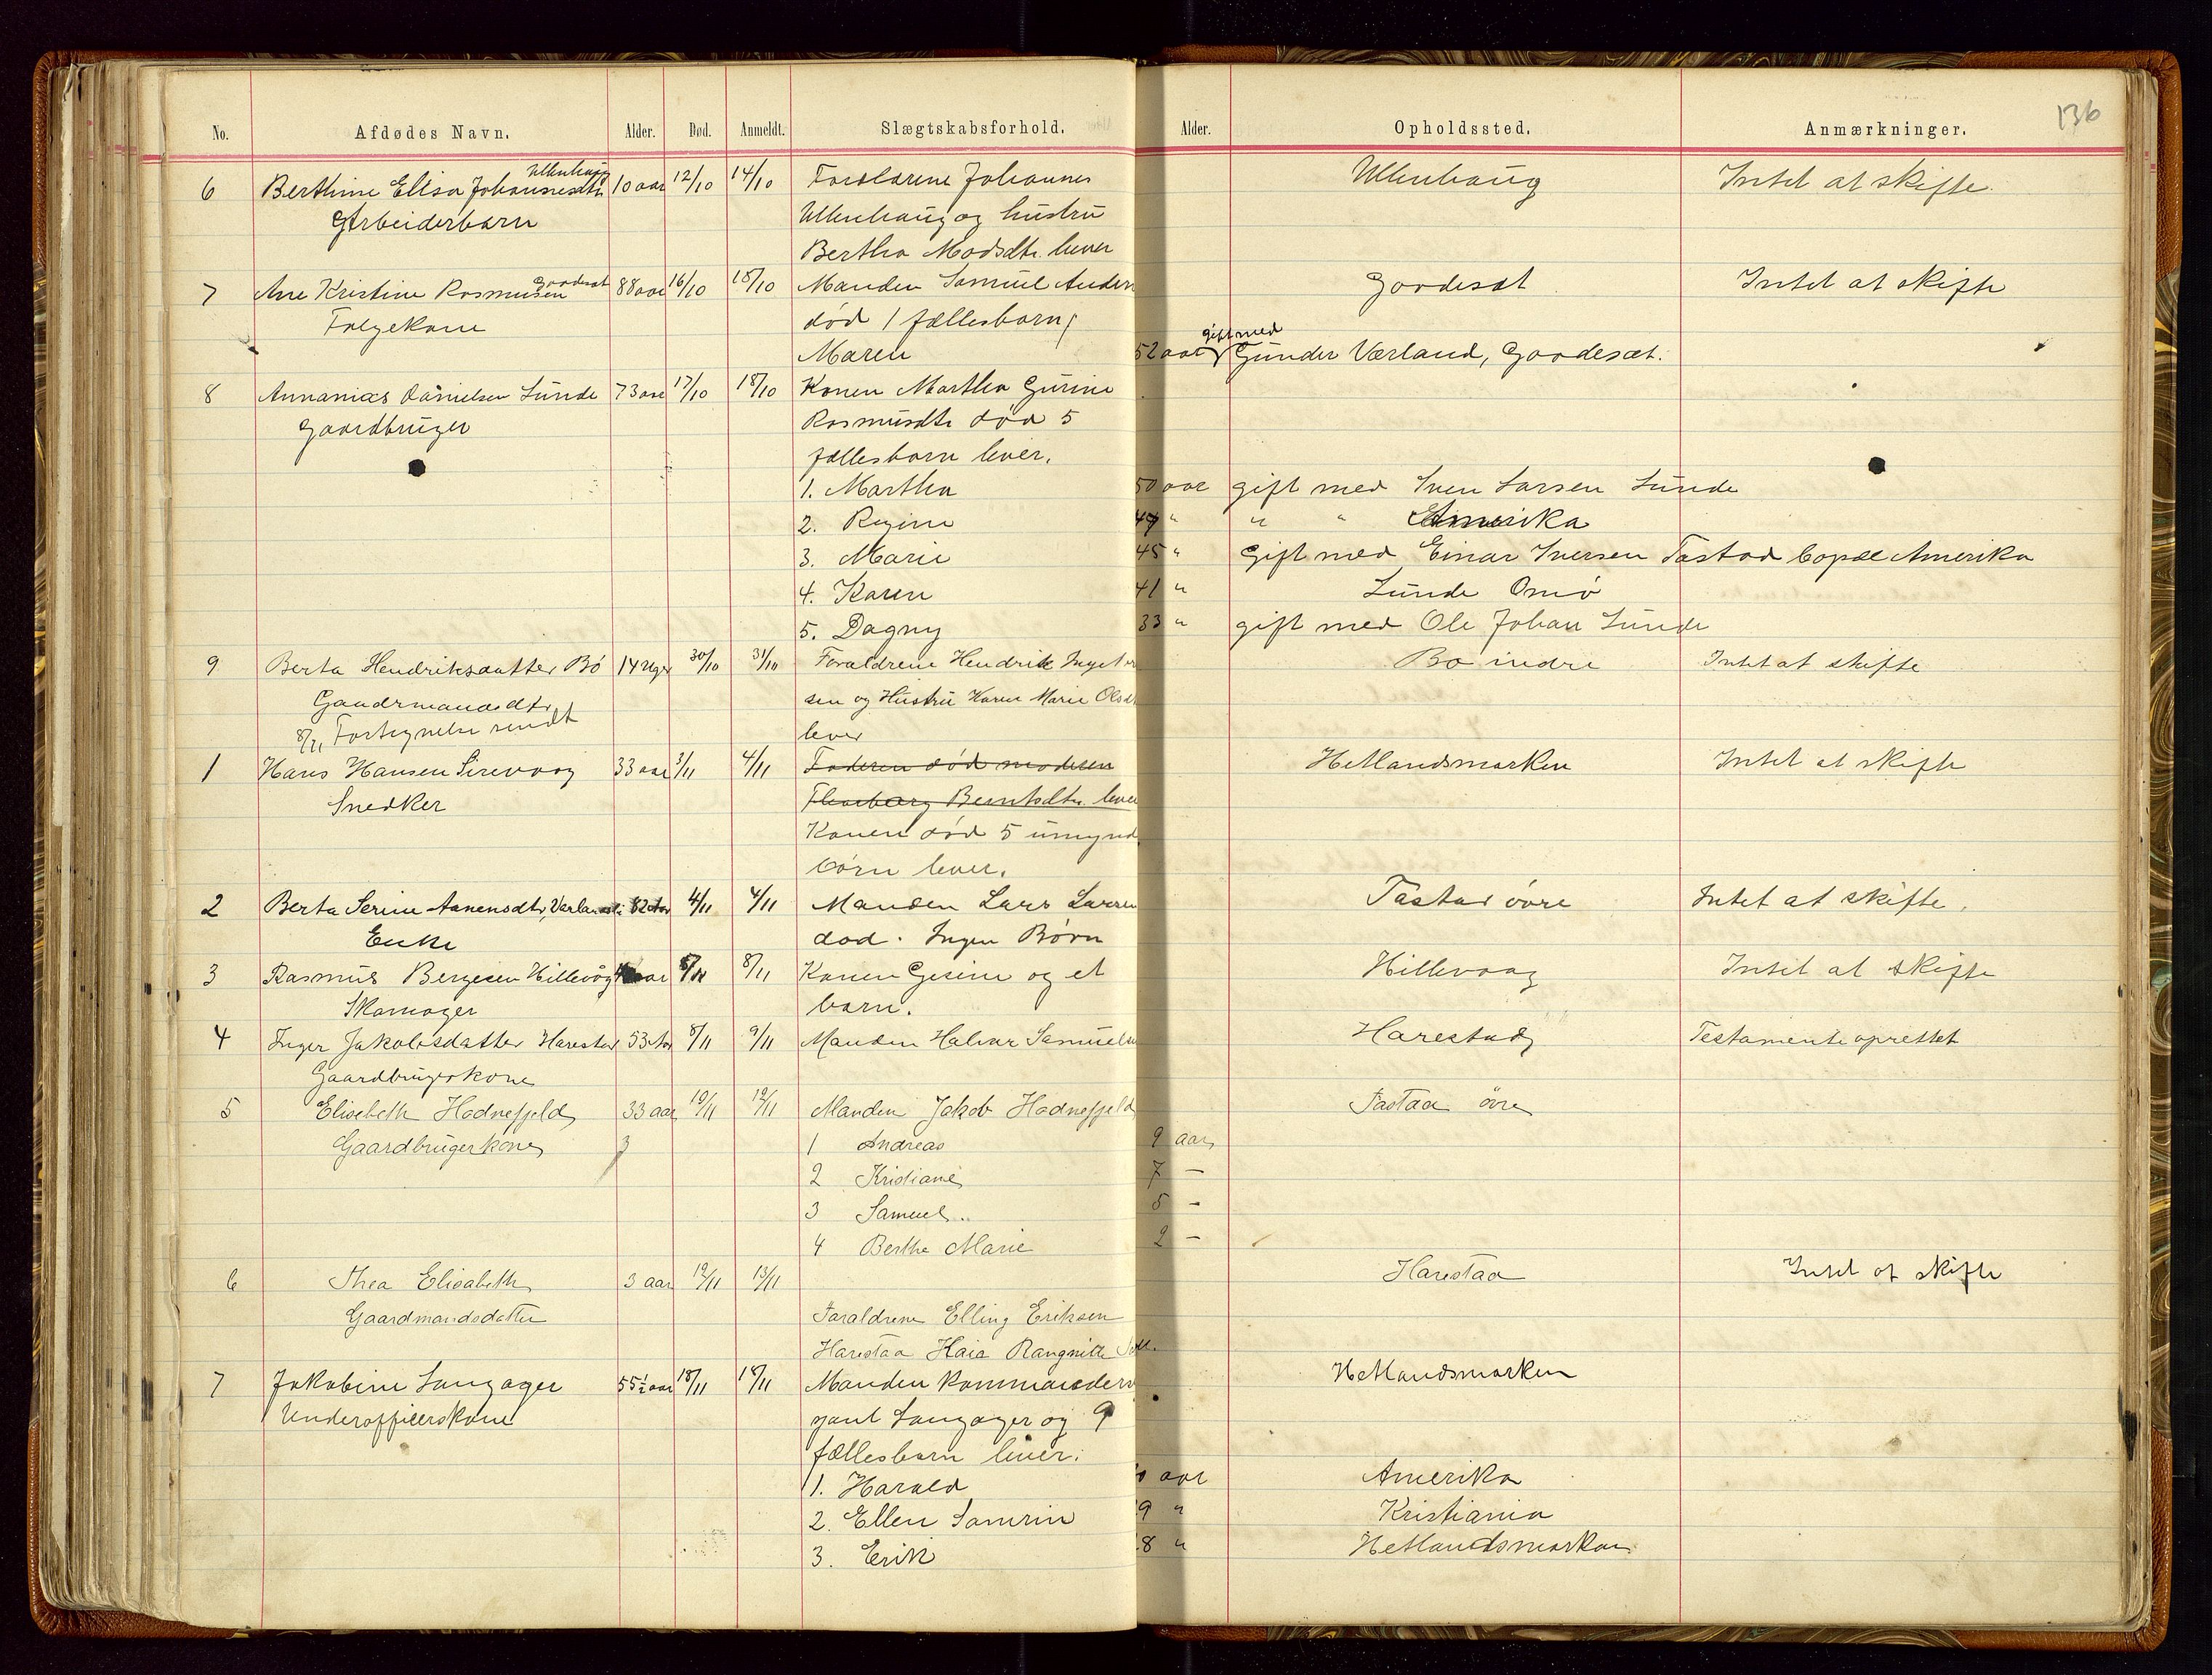 No. Afdødes Navn. Alder. Død. Anmeldt. Slægtskabsforhold. Alder. Opholdssted. Anmærkninger. 136
Ullenhaug
6 Berthine Elisa Johannesdtr 10 aar 12/10 14/10 Forældrene Johannes Ullenhaug Intet at skifte.
Arbeiderbarn Ullenhaug og hustru
Bertha Madsdtr. lever
Goodesæt
7 Ane Kristine Rasmusen 88 aar 16/10 18/10 Manden Samuel Anders Goodesæt Intet at skifte
Følgekone død 1 fællesbarn;
gift med
Maren 52 aar Gunder Værland, Goodesæt.
8 Annanias Danielsen Lunde 73 aar 17/10 18/10 Konen Martha Gurine
Gaardbruger Rasmusdtr død 5
fællesbarn lever.
1. Martha 50 aar gift med Sven Larsen Lunde
2. Regine 47 " " " Amerika
3. Marie 45 " Gift med Einar Iversen Tastad bopæl Amerika
4. Karen 41 " Lunde Omø
5. Dagny 33 " gift med Ole Johan Lunde
9 Berta Hendriksdatter Bø 14 Uger 30/10 31/10 Forældrene Hendrik Inget Bø indre Intet at skifte
Gaardmandsdtr. sen og Hustru Karen Marie Olsdt
8/11 Fortegnelse sendt lever
1 Hans Hansen Sirevaag 33 aar 3/11 4/11 Faderen død moderen Hetlandsmarken Intet at skifte
Snedker Berntsdtr. lever
Konen død 5 umynd
børn lever.
2 Berta Serine Aanensdtr, Varland 82 Aar 4/11 4/11 Manden Lars Larsen Tastad øvre Intet at skifte.
Enke død. Ingen Børn
3 Rasmus Bergesen Hillevåg aar 8/11 8/11 Konen Gesine og et Hillevaag Intet at skifte
Skomager barn.
4 Inger Jakobsdatter Harestad 53 Aar 8/11 9/11 Manden Halvor Samuels Harestad Testamente oprettet
Gaardbrugerkone
5 Elisabeth Hodnefjeld 33 aar 10/11 12/11 Manden Jakob Hodnefjeld Tastaa øvre
Gaardbrugerkone 1 Andreas 9 aar
2 Kristiane 7 —
3 Samuel 5 —
4 Berthe Marie 2 —
6 Thea Elisabeth 3 aar 12/11 13/11 Harestaa Intet at skifte
Gaardmandsdatter Foraldrene Elling Eriksen
Harestaa Kaia Rangnille
7 Jakobine Langager 55 1/2 aar 18/11 18/11 Manden Kommanders Hetlandsmarken
Underofficerskone jant Langager og 9
fællesbarn lever:
1. Harald aar Amerika
2. Ellen Samrin 9 " Kristiania
3. Erik 8 " Hetlandsmarken